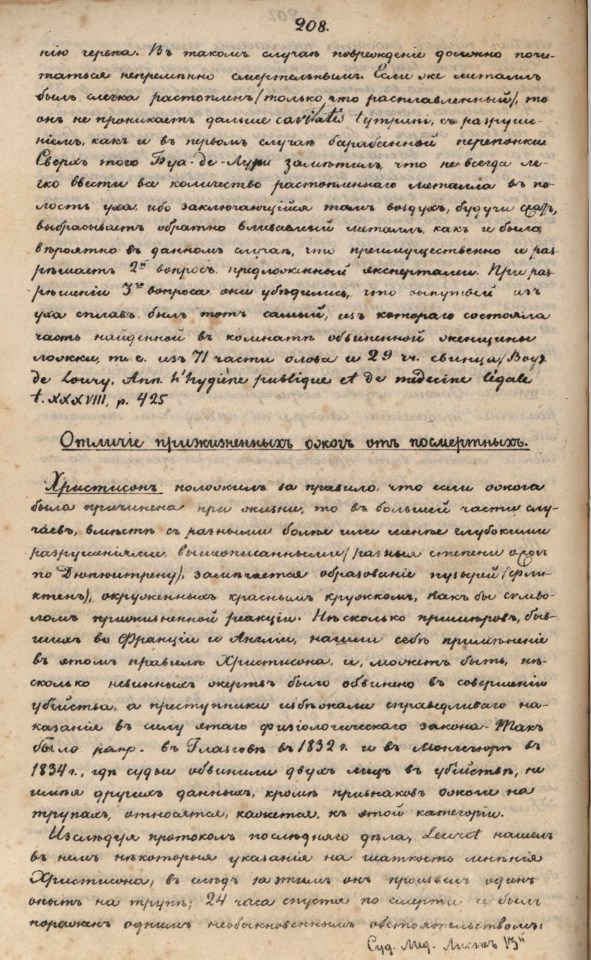 208.
нію черепа. Въ такомъ случаѣ поврежденіе должно почи-
таться непремѣнно смертельнымъ. Если же металлъ
былъ слегка растопленъ/только что расплавленный/, то
онъ не проникаетъ дальше cavitatis tympani, съ разруше-
ніемъ, какъ и въ первомъ случаѣ барабанной перепонки
Сверхъ того Буа-де-Лури замѣтилъ, что не всегда ле-
гко ввести все количество растопленнаго металла въ по-
лость уха ибо заключающійся тамъ воздухъ, будучи
выбрасываетъ обратно вливаемый металлъ, какъ и было
вѣроятно въ данномъ случаѣ, что преимущественно и раз-
рѣшаетъ 2й вопросъ, предложенный экспертамъ. При раз-
рѣшеніи 3го вопроса они убѣдились, что вынутый изъ
уха сплавъ былъ тотъ самый, изъ котораго состояла
часть найденной въ комнатѣ обвиненной женщины
ложки, т. е. изъ 71 части олова и 29 ч. свинца/Boys
de Loury, Ann. d'hygiène publique et de médecine légale
t. XXXVIII, p. 425
Отличіе прижизненныхъ ожогъ отъ посмертныхъ.
Христисонъ положилъ за правило, что если ожога
была причинена при жизни, то въ большей части слу-
чаевъ, вмѣстѣ съ разными болѣе или менѣе глубокими
разрушеніями вышеописанными/разныя степени ожогъ
по Дюпюитрену/, замѣчается образованіе пузырей/фли-
ктенъ/, окруженныхъ краснымъ кружкомъ, какъ бы симво-
ломъ прижизненной реакціи. Нѣсколько примѣровъ, быв-
шихъ во Франціи и Англіи, нашли себѣ примѣненіе
въ этомъ правилѣ Христисона, и, можетъ быть, нѣ-
сколько невинныхъ жертвъ было обвинено въ совершеніи
убійства, а преступники избѣжали справедливаго на-
казанія въ силу этаго физіологическаго закона. Такъ
было напр. въ Глазговѣ въ 1832 г. и въ въ
1834 г., гдѣ судьи обвинили двухъ лицъ въ убійствѣ, не
имѣя другихъ данныхъ, кромѣ признаковъ ожоги на
трупахъ, относятся, кажется, къ этой категоріи.
Изслѣдуя протоколъ послѣдняго дѣла, Leuret нашелъ
въ немъ нѣкоторыя указанія на шаткость мнѣнія
Христисона, въ слѣдъ за этимъ онъ произвелъ одинъ
опытъ на трупѣ, 24 часа спустя по смерти и былъ
пораженъ однимъ необыкновеннымъ обстоятельствомъ:
Суд. Мед. Листъ